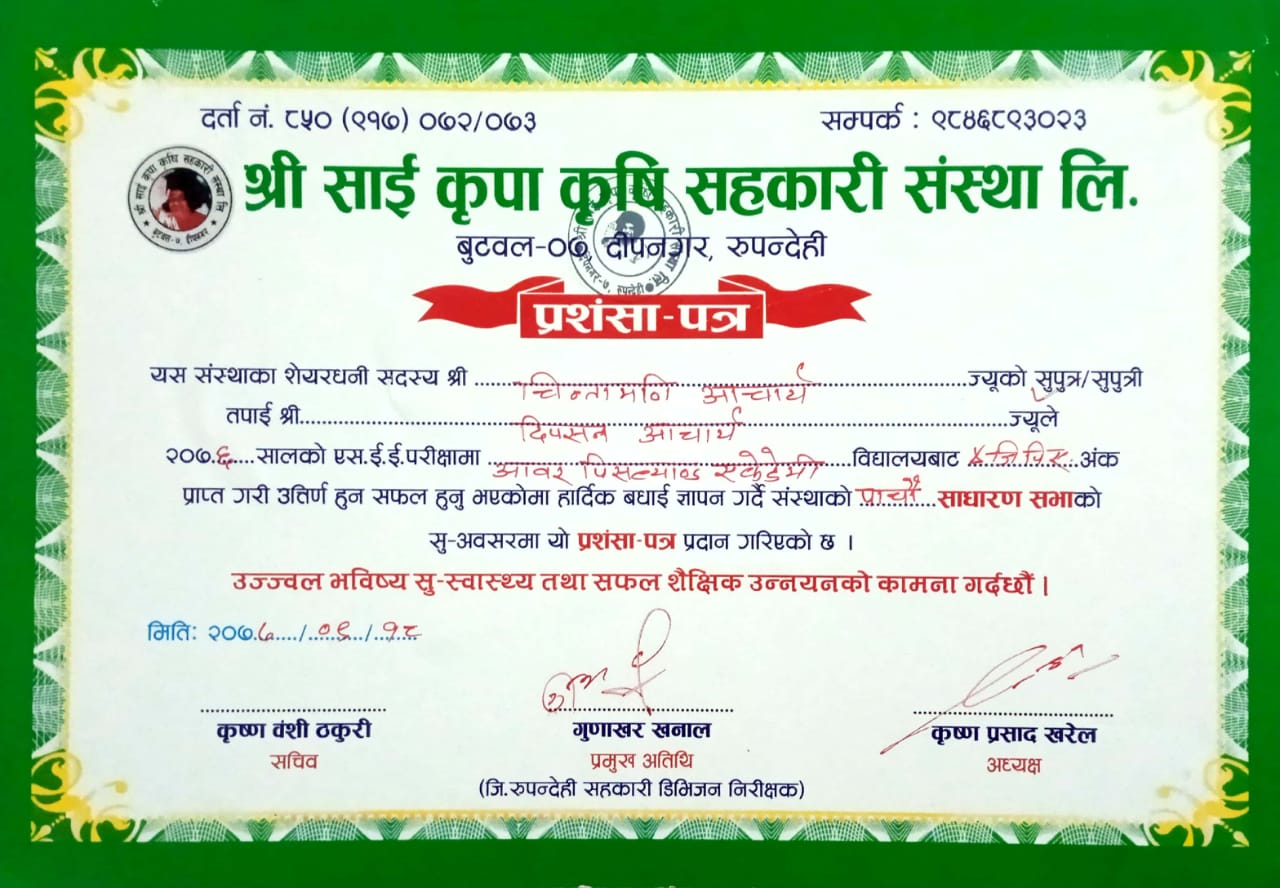 दर्ता नं. ८५० (९१७) ०७२/०७३
सम्पर्क : ९८४६८९३०२३
श्री साई कृपा कृषि सहकारी संस्था लि.
बुटवल-०७ दीपनगर, रुपन्देही
प्रशंसा-पत्र
यस संस्थाका शेयरधनी सदस्य श्री चिन्तामणि आचार्य ज्यूको सुपुत्र/सुपुत्री
तपाई श्री दिपसन आचार्य ज्यूले
२०७६ सालको एस.ई.ई.परीक्षामा आवर पिसल्याण्ड एकेडेमी विद्यालयबाट अंक
प्राप्त गरी उत्तिर्ण हुन सफल हुनु भएकोमा हार्दिक बधाई ज्ञापन गर्दै संस्थाको पाचौं साधारण सभाको
सु-अवसरमा यो प्रशंसा-पत्र प्रदान गरिएको छ ।
उज्ज्वल भविष्य सु-स्वास्थ्य तथा सफल शैक्षिक उन्नयनको कामना गर्दछौं ।
मिति: २०७७/०६/१८
कृष्ण वंशी ठकुरी
सचिव
गुणाखर खनाल
प्रमुख अतिथि
(जि.रुपन्देही सहकारी डिभिजन निरीक्षक)
कृष्ण प्रसाद खरेल
अध्यक्ष